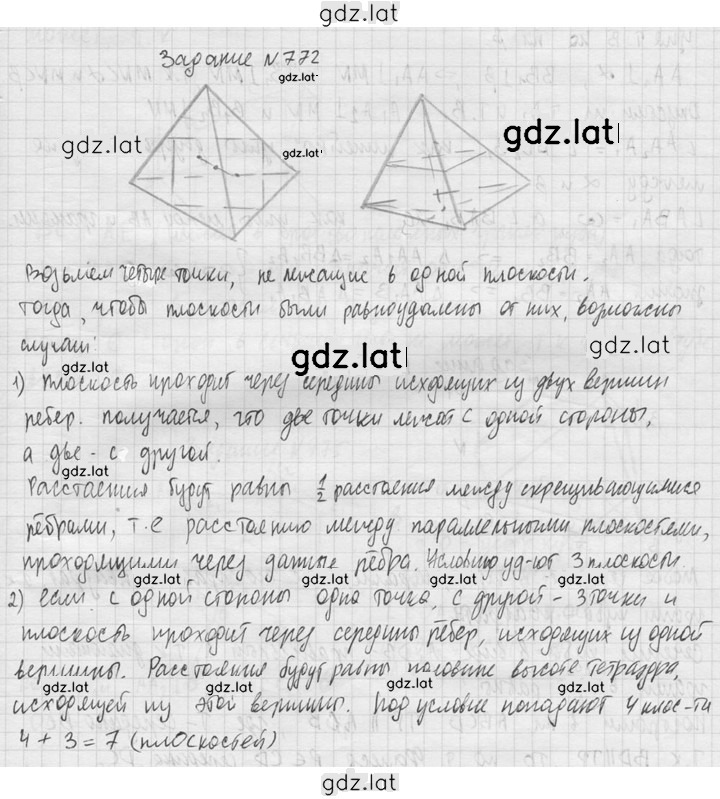 gdz.lat
Задание N 772
gdz.lat
gdz.lat
gdz.lat
gdz.lat
Возьмем четыре точки, не лежащие в одной плоскости.
Тогда, чтобы плоскости были равноудалены от них, возможны
gdz.lat
случаи:
gdz.lat
gdz.lat
1) плоскость проходит через середины исходящих из двух вершин
gdz.lat
ребер. получается, что две точки лежат с одной стороны,
а две - с другой.
gdz.lat
Расстояния будут равны 1/2 расстояния между скрещивающимися
рёбрами, т.е расстоянию между параллельными плоскостями,
проходящими через данные рёбра. Условию уд-ют 3 плоскости.
gdz.lat gdz.lat gdz.lat
2) если с одной стороны одна точка, с другой - 3 точки и
плоскость проходит через середины рёбер, исходящих из одной
вершины. Расстояния будут равны половине высоте тетраэдра,
gdz.lat gdz.lat gdz.lat
исходящей из этой вершины. Под условие попадают 4 плос-ти
4 + 3 = 7 (плоскостей)
gdz.lat